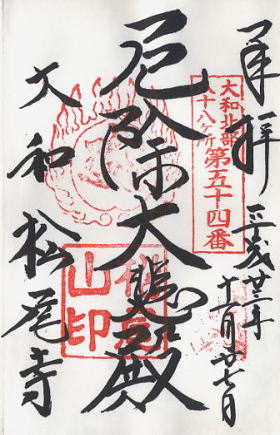 奉拝
平成廿三年
十一月廿七日
大和北部
八十八ヶ所
第五十四番
厄除大悲殿
山印
大和 松尾寺